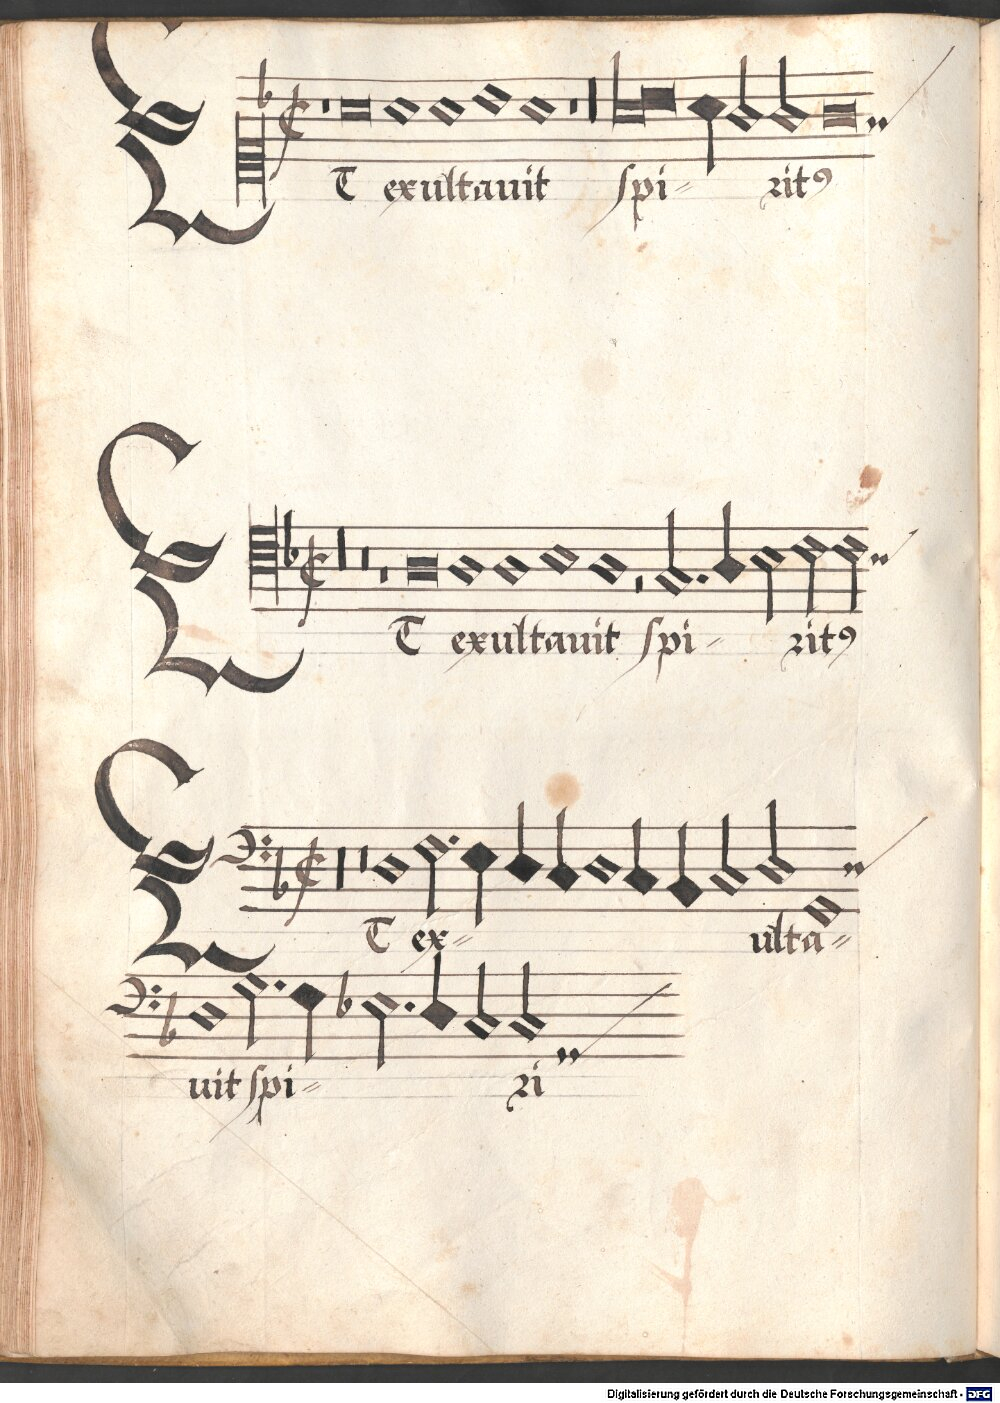 ET exultauit spi= ritꝰ
ET exultauit spi- ritꝰ
ET ex= ulta=
uit spi= ri
Digitalisierung gefördert durch die Deutsche Forschungsgemeinschaft - DFG